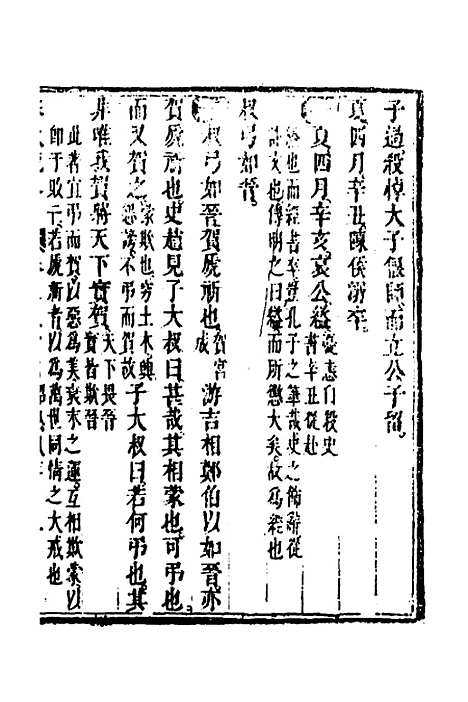 子過殺悼大子偃師而立公子留
夏四月辛丑陳侯溺卒
夏四月辛亥哀公縊憂恚自殺史書辛丑從赴
縊也而經書卒豈孔子之筆哉史之飾辭從
訃故也傳明之曰縊而所懲大矣故為經也
叔弓如晉
叔弓如晉賀虒祁也賀宮成游吉相鄭伯以如晉亦
賀虒祁也史趙見子大叔曰甚哉其相蒙也可弔也
而又賀之蒙欺也窮土木不弔而賀故子大叔曰若何弔也其
非唯我賀將天下實賀天下畏晉皆欺晉
此著宜弔而賀以惡為美衰末之運互相欺蒙以
即于敗亡若虒祁者以為萬世同情之大戒也